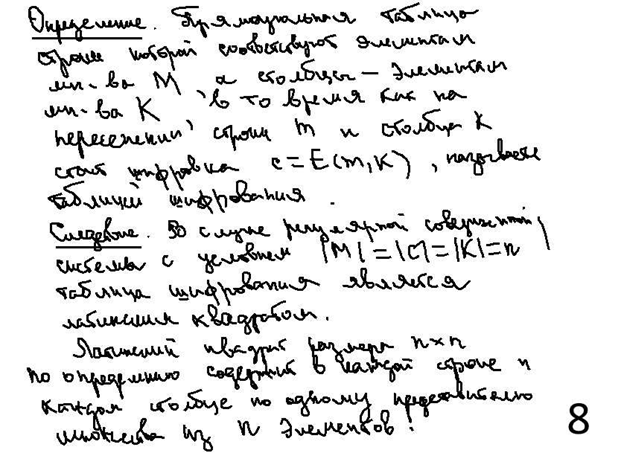 Определение. Прямоугольная таблица
строки которой соответствуют элементам
мн-ва M, а столбцы — элементам
мн-ва K, в то время как на
пересечении строки m и столбца k
стоит шифровка c = E(m,k), называется
таблицей шифрования.
Следствие. В случае регулярной совершенной
системы с условием |M|=|C|=|K|=n
таблица шифрования является
латинским квадратом.
Латинский квадрат размера n×n
по определению содержит в каждой строке и
каждом столбце по одному представителю
множества из n элементов!
8